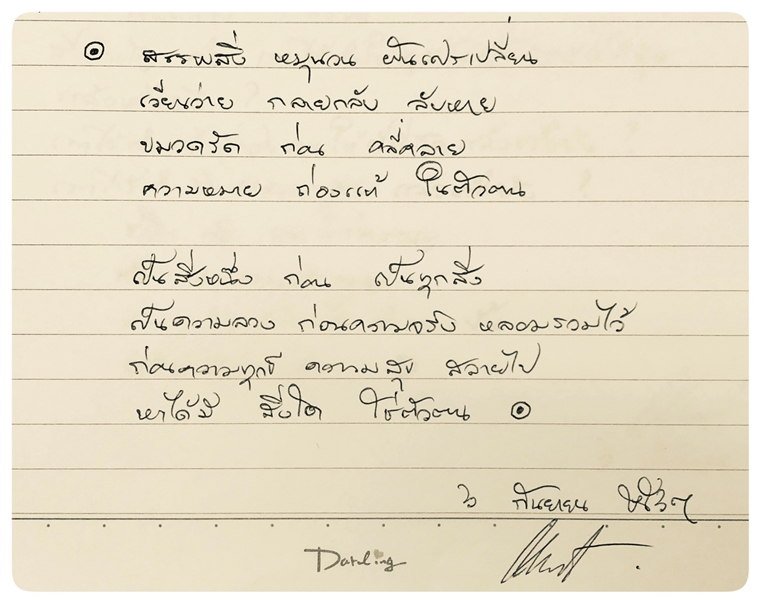 ๏ สรรพสิ่ง หมุนวน ผันแปรเปลี่ยน
เวียนว่าย กลายกลับ ลับหาย
ขมวดรัด ก่อน คลี่คลาย
ความหมาย ถ่องแท้ ในตัวตน
เป็นสิ่งหนึ่ง ก่อน เป็นทุกสิ่ง
เป็นความลวง ก่อนความจริง หลอมรวมไว้
ก่อนความทุกข์ ความสุข สลายไป
หาได้มี สิ่งใด ใช่ตัวตน ๏
๖ กันยายน
Darling